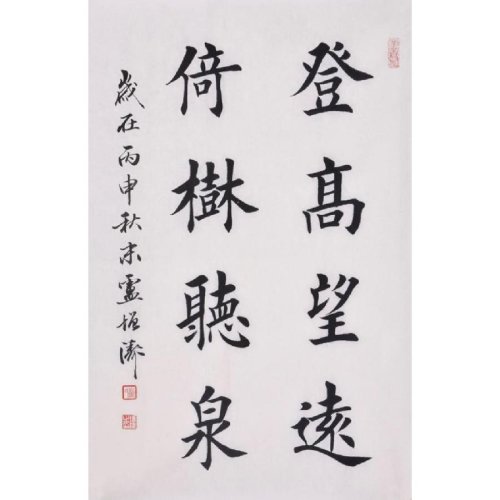 登髙望遠
倚樹聽泉
歲在丙申秋末盧恒濤